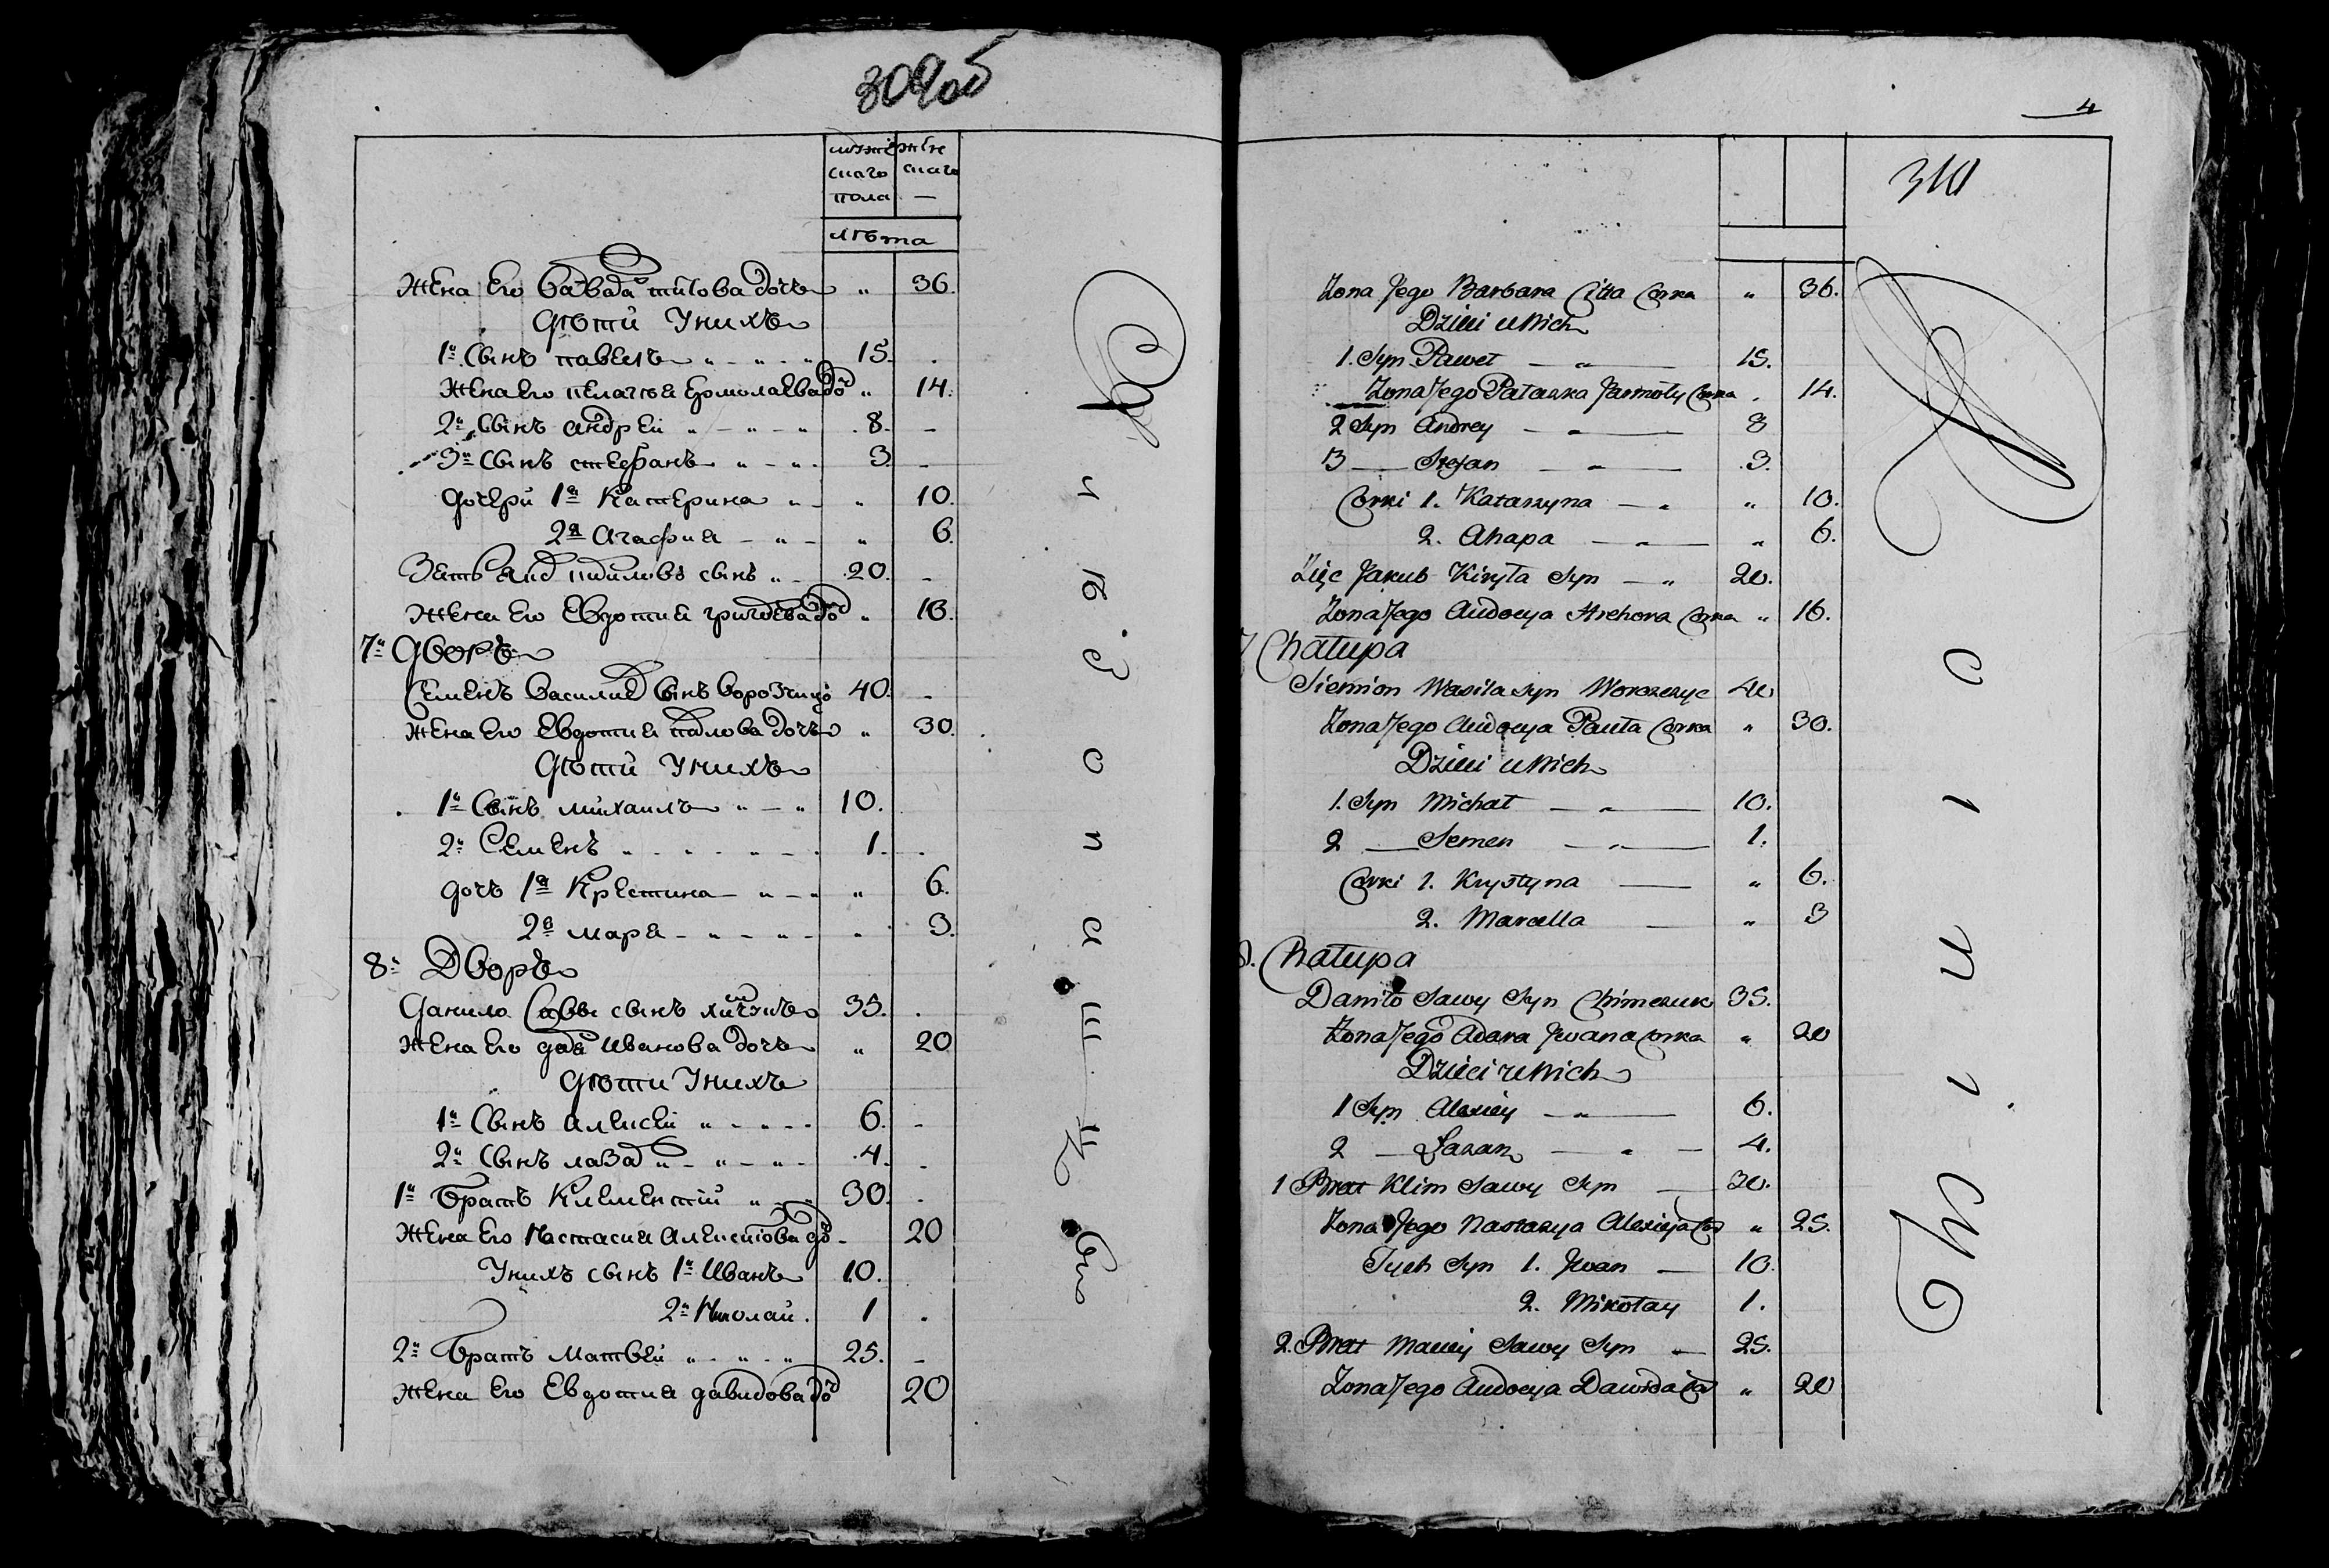 309об
мужескаго пола
женскаго —
лѣта
Жена Его Варвара титова дочь „ 36.
Дѣти Унихъ
1й Сынъ павелъ „ 15.
Жена Его пелагѣя Ермолаева до „ 14.
2й Сынъ андрей „ 8.
3й Сынъ стефанъ „ 3.
дочери 1я Катерина „ 10.
2я Агафия „ 6.
Зять сынъ „ 20.
Жена Его Евдотия до „ 16.
7й Дворъ
Семенъ василиев Сынъ 40.
Жена Его Евдотия павлова дочь „ 30.
Дѣти Унихъ
1й Сынъ михаилъ „ 10.
2й Семенъ „ 1.
дочь 1я Крестина „ 6.
2я маря „ 3.
8й Дворъ
Данило Савы сынъ 35.
Жена Его Иванова дочь „ 20
Дѣти Унихъ
1й Сынъ алексей „ 6.
2й Сынъ лазар „ 4.
1й братъ Клементий „ 30.
Жена Его Настасия до 20
Унихъ сынъ 1й Иванъ 10.
2й Николай. 1
2й братъ Матвей „ 25.
Жена Его Евдотия давидова до 20
4
310
Zona Jego Barbara Citta Corka „ 36.
Dzieci u Nich
1. Syn Paweł — „ — 15.
Zona Jego Pałaszka Jarmoły Corka „ 14.
2 Syn Andrey — „ — 8
3 — Stefan — „ — 3.
Corki 1. Katarzyna — „ „ 10.
2. Ahapa — „ — „ 6.
Zięc Jakub Kiryła Syn — „ 20.
Zona Jego Audocya Hrehora Corka „ 16.
7 Chałupa
Siemion Wasila Syn 40
Zona Jego Audocya Pauła Corka „ 30.
Dzieci u Nich
1. Syn Michał — „ — 10.
2 — Semen — „ — 1.
Corki 1. Krystyna — „ 6.
2. Marcella — „ 3
8. Chałupa
Daniło Sawy Syn Chimczuk 35.
Zona Jego Adara Jwana Corka „ 20
Dzieci u Nich
1 Syn Alexiey — „ — 6.
2 — Łazarz — „ — 4.
1 Brat Klim Sawy Syn — 30.
Zona Jego Nastazya Alexieja Cor „ 25.
Tych Syn 1. Jwan — 10.
2. Mikołay 1.
2. Brat Maciey Sawy Syn — 25.
Zona Jego Audocya Dawida Cor „ 20